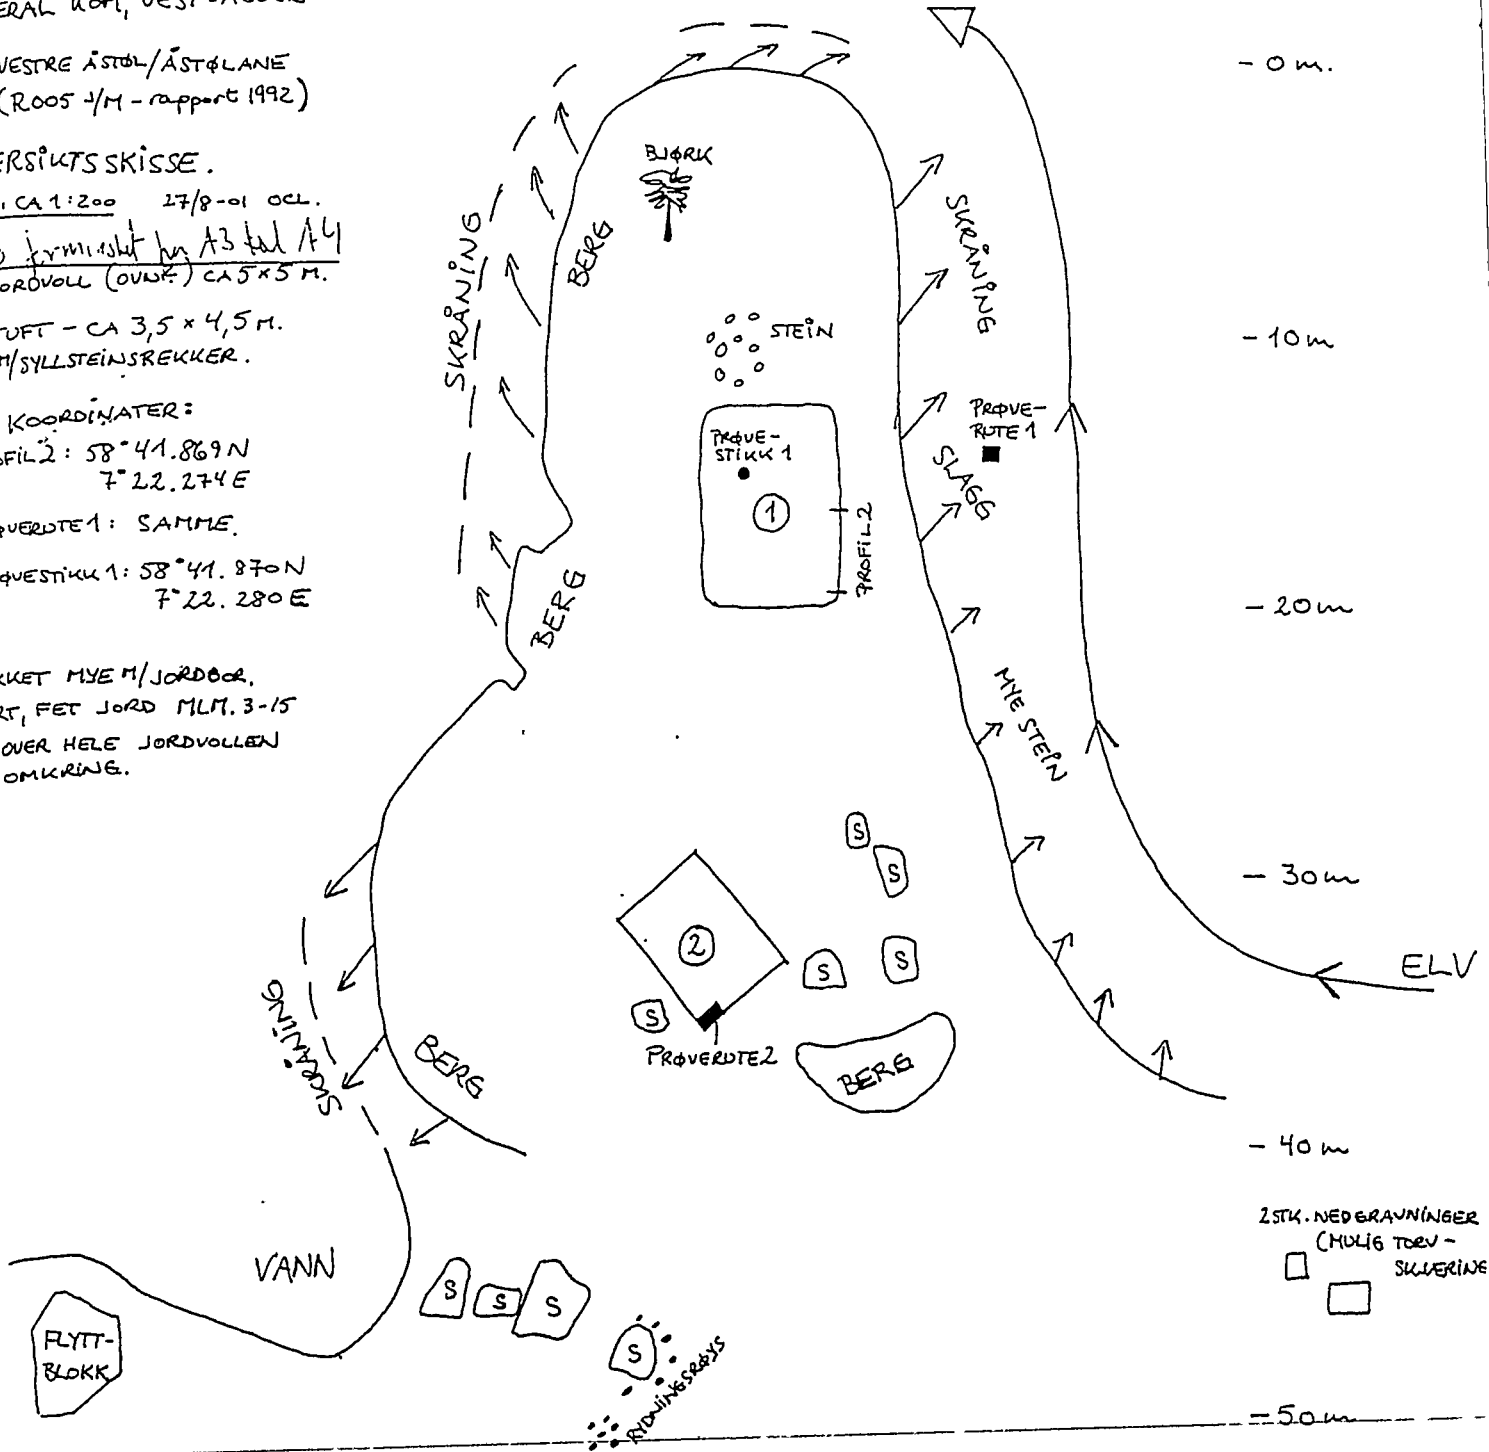 ERAL KOM, VEST-AGDER
VESTRE ÅSTØL/ÅSTØLANE
(R005 J/M - rapport 1992)
ERSIKTSSKISSE.
CA 1:200 27/8-01 OCL.
A3 A4
ORDVOLL CA 5 x 5 M.
TUFT - CA 3,5 x 4,5 M.
M/SYLLSTEINSREKKER.
KOORDINATER:
FIL 2: 58°41.869 N
7°22.274 E
ØVERUTE 1: SAMME.
ØVESTIKK 1: 58°41.870 N
7°22.280 E
KKET MYE M/JORDBOR.
RT, FET JORD MLM. 3-15
OVER HELE JORDVOLLEN
OMKRING.
SKRÅNING
BERG
BJØRK
STEIN
SKRÅNING
PRØVE-
STIKK 1
1
PROFIL 2
SLAGG
PRØVE-
RUTE 1
BERG
MYE STEIN
S
S
2
S
S
S
PRØVERUTE 2
BERG
ELV
SKRÅNING
BERG
VANN
FLYTT-
BLOKK
S
S
S
S
RYDNINGSRØYS
- 0 m.
- 10 m
- 20 m
- 30 m
- 40 m
2 STK. NEDGRAVNINGER
(MULIG TORV-
SKJÆRING
- 50 m